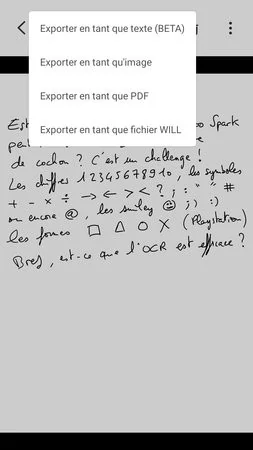 Exporter en tant que texte (BETA)
Exporter en tant qu'image
Exporter en tant que PDF
Exporter en tant que fichier WILL
Est Spark
de cochon ? C'est un challenge !
Les chiffres 12345678910, les symboles
+ - × ÷ → ← > < ? ; : " " #
ou encore @, les smiley ☺ ;) :)
les formes □ △ ○ X (Playstation)
Bref, est-ce que l'OCR est efficace ?